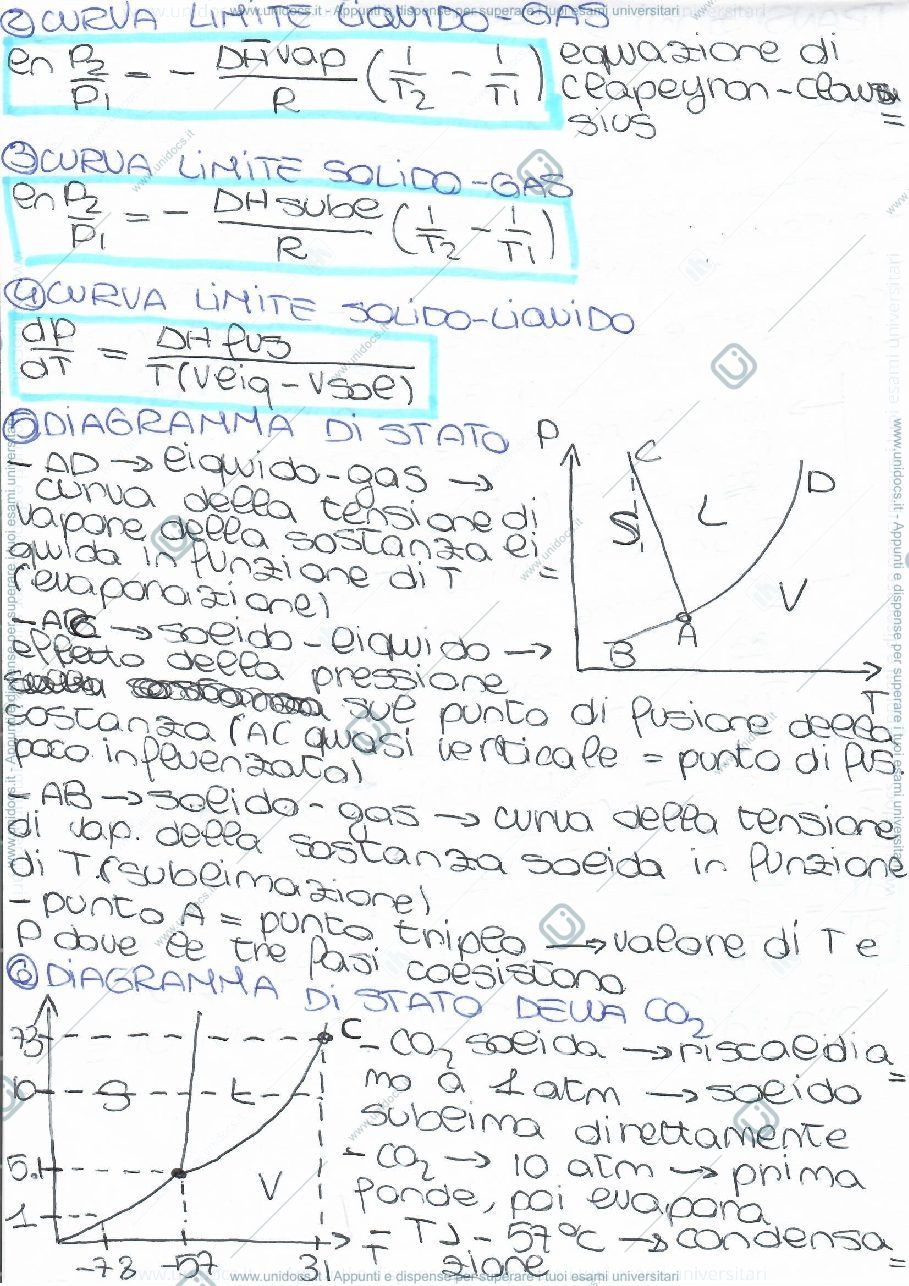 ② CURVA LIMITE LIQUIDO-GAS
ln P2/P1 = - ΔH̅vap/R (1/T2 - 1/T1) equazione di
clapeyron-clau=
sius
③ CURVA LIMITE SOLIDO-GAS
ln P2/P1 = - ΔHsubl/R (1/T2 - 1/T1)
④ CURVA LIMITE SOLIDO-LIQUIDO
dP/dT = ΔH fus/T(Vliq - Vsol)
⑤ DIAGRAMMA DI STATO
- AD → liquido-gas →
curva della tensione di
vapore della sostanza li=
quida in funzione di T
(evaporazione)
- AC → solido-liquido →
effetto della pressione
sul punto di fusione della
sostanza (AC quasi verticale = punto di fus.
poco influenzato)
- AB → solido-gas → curva della tensione
di vap. della sostanza solida in funzione
di T. (sublimazione)
- punto A = punto triplo → valore di T e
P dove le tre fasi coesistono
P
C
D
S
L
V
A
B
T
⑥ DIAGRAMMA DI STATO DELLA CO2
- CO2 solida → riscaldia=
mo a 1 atm → solido
sublima direttamente
- CO2 → 10 atm → prima
fonde, poi evapora
- T > - 57°C → condensa=
zione
73
10
5.1
1
S
L
V
C
-78
-57
31
T
www.unidocs.it - Appunti e dispense per superare i tuoi esami universitari